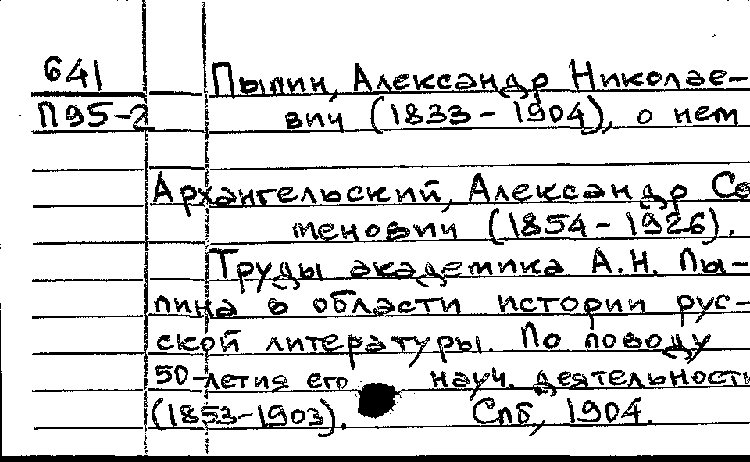 641 Пыпин, Александр Николае-
П95-2 вич (1833 - 1904), о нем
Архангельский, Александр Се
менович (1854 - 1926).
Труды академика А.Н. Пы-
пина в области истории рус-
ской литературы. По поводу
50-летия его науч. деятельности
(1853-1903). Спб, 1904.